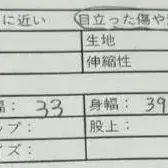 に近い 目立った傷や
生地
伸縮性
幅： 33 身幅： 39
ップ： 股上：
イズ：